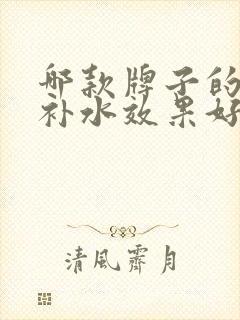 哪款牌子的
补水效果好
清風霽月